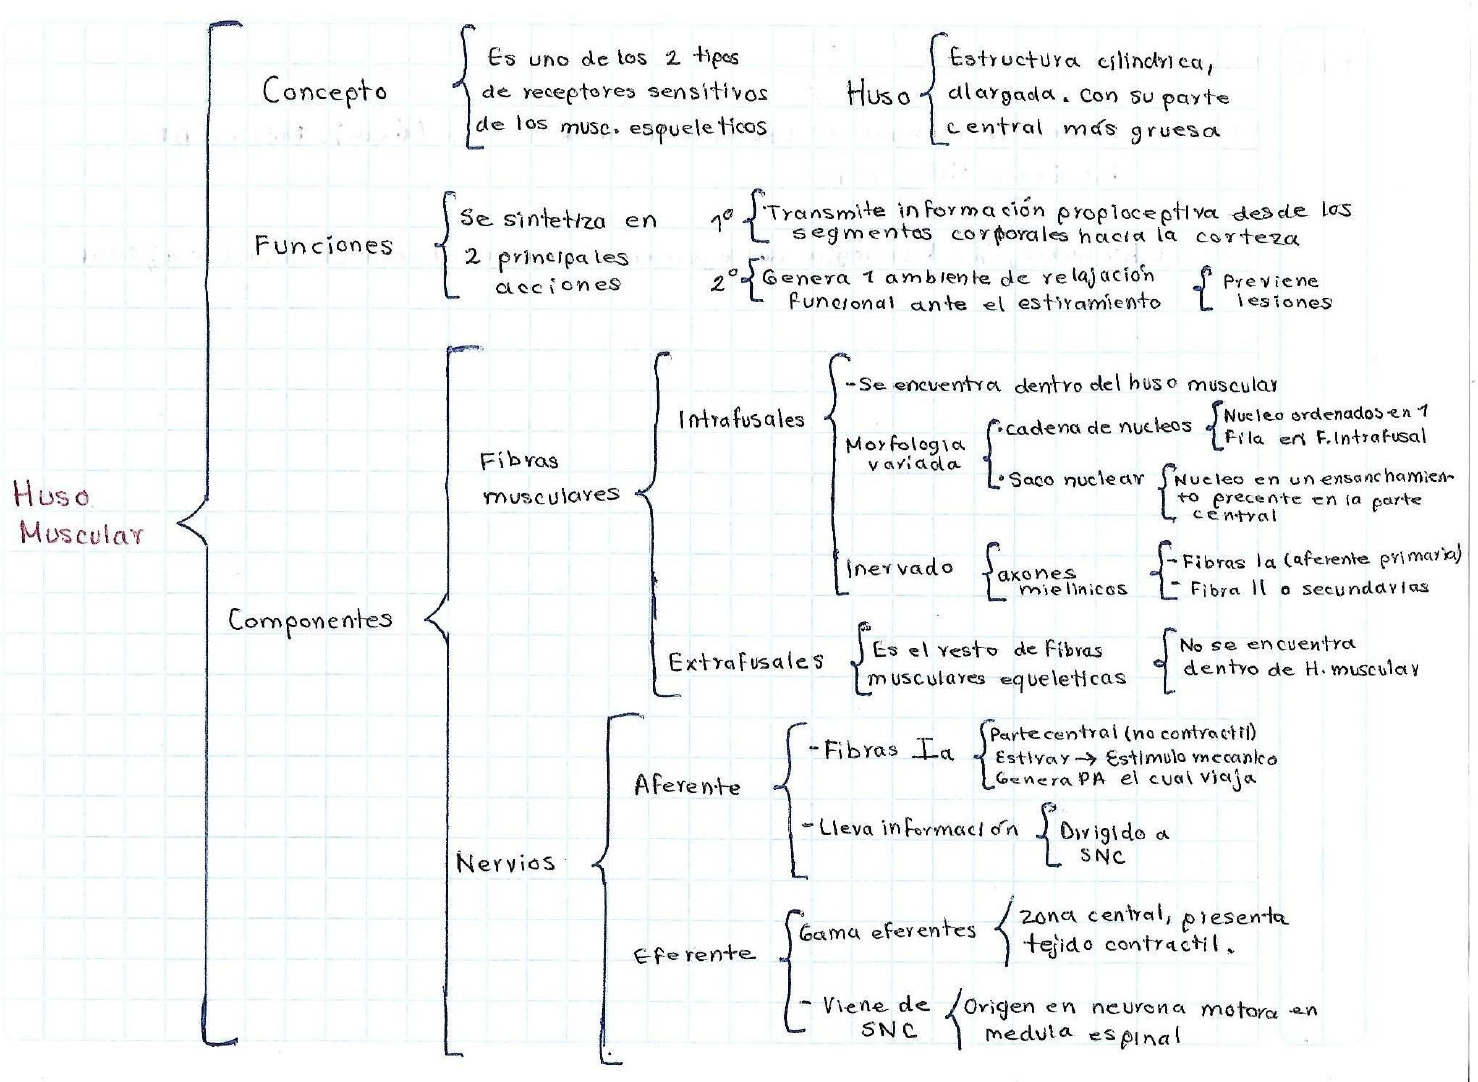 Huso
Muscular
Concepto
Es uno de los 2 tipos
de receptores sensitivos
de los musc. esqueleticos
Huso
Estructura cilindrica,
alargada. con su parte
central más gruesa
Funciones
Se sintetiza en
2 principales
acciones
1º
Transmite información propioceptiva desde los
segmentos corporales hacia la corteza
2º
Genera 1 ambiente de relajación
funcional ante el estiramiento
Previene
lesiones
Componentes
Fibras
musculares
Intrafusales
-Se encuentra dentro del huso muscular
Morfología
variada
·cadena de nucleos
Nucleo ordenados en 1
Fila en F. Intrafusal
·Saco nuclear
Nucleo en un ensanchamien-
to precente en la parte
central
Inervado
axones
mielinicos
-Fibras Ia (aferente primaria)
- Fibra II o secundarias
Extrafusales
Es el resto de Fibras
musculares equeleticas
No se encuentra
dentro de H. muscular
Nervios
Aferente
-Fibras Ia
Parte central (no contractil)
Estirar → Estimulo mecanico
Genera PA el cual viaja
-Lleva información
Dirigido a
SNC
Eferente
Gama eferentes
Zona central, presenta
tejido contractil.
- Viene de
SNC
Origen en neurona motora en
medula espinal